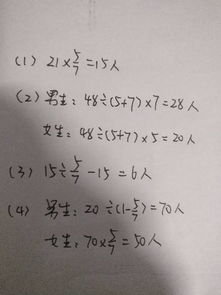 (1) 21×5/7=15人
(2) 男生：48÷(5+7)×7=28人
女生：48÷(5+7)×5=20人
(3) 15÷5/7-15=6人
(4) 男生：20÷(1-5/7)=70人
女生：70×5/7=50人